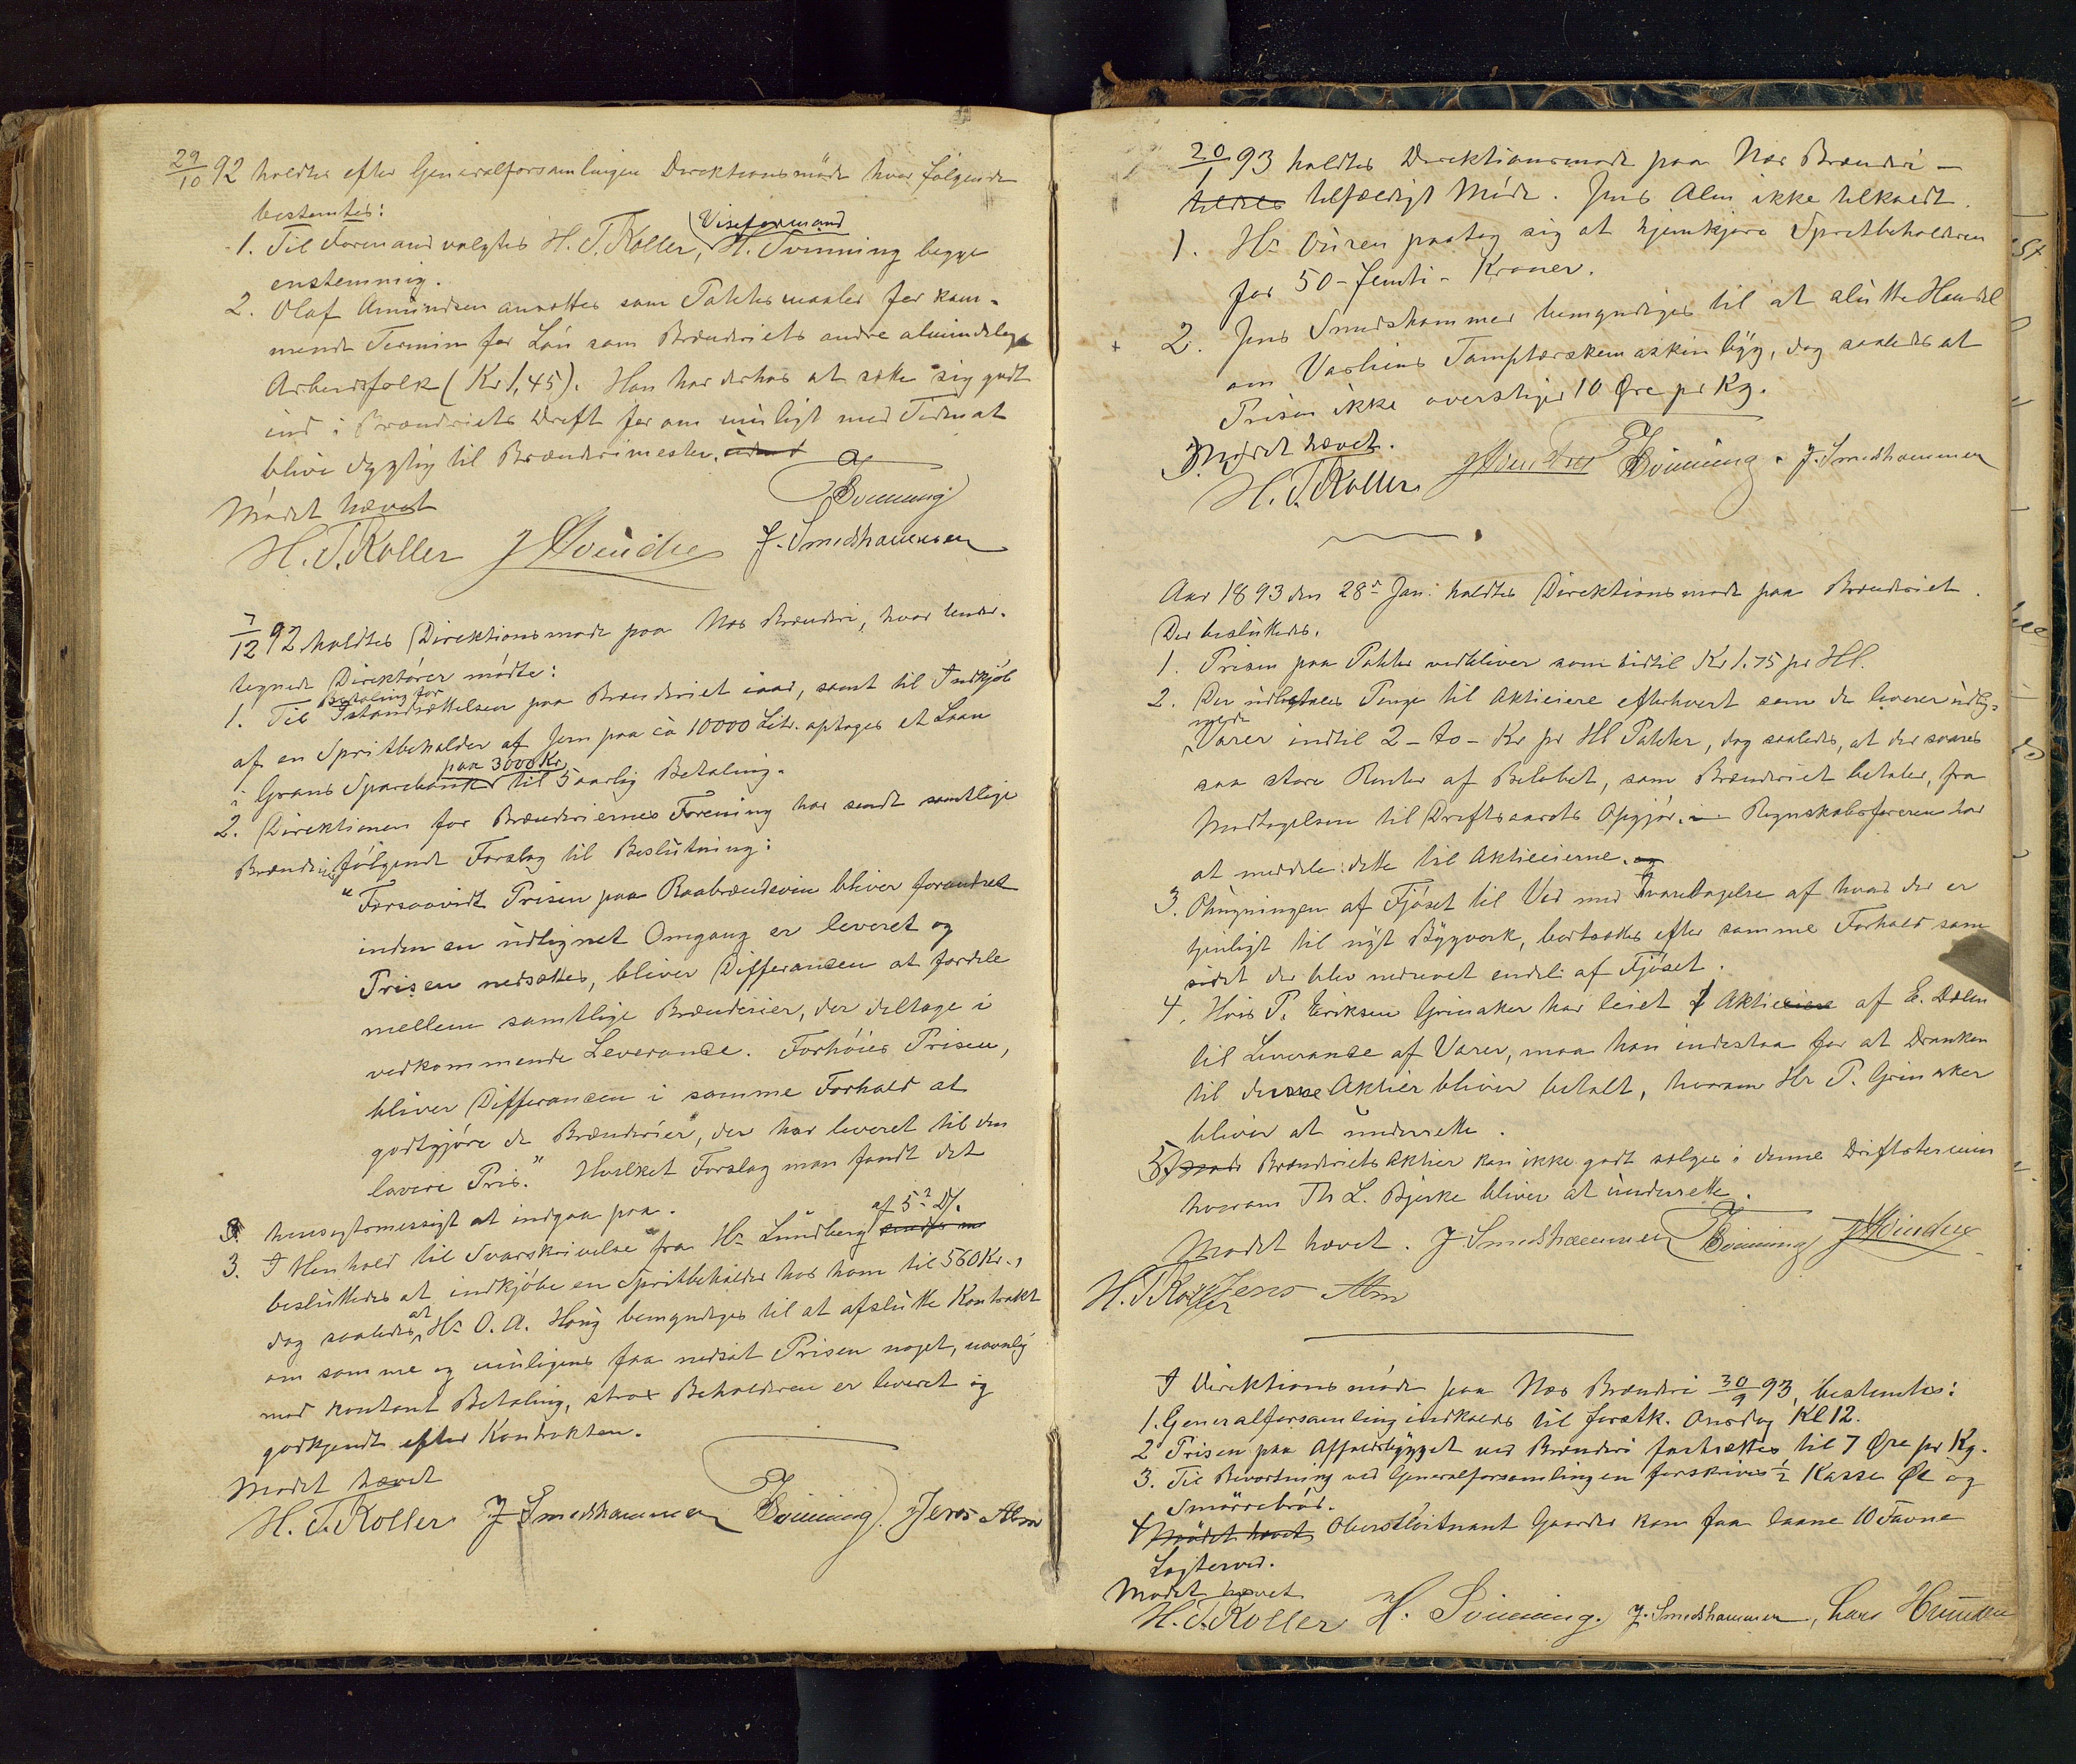 29/10 92 holdtes efter Generalforsamlingen Direktionsmöde hvor følgende
bestemtes:
1. Til Formand valgtes H. T. Koller, Viseformand H. Svinning begge
enstemmig.
2. Olaf Amundsen ansættes som Pottitmaaler for kom-
mende Termin for Løn som Brænderiets andre almindelige
Arbeidsfolk (Kr 1,45). Han har derhos at sætte sig godt
ind i Brænderiets Drift for om muligt med Tiden at
blive dygtig til Brænderimester.
Mødet hævet
H. Svinning
H. T. Koller J. Smedshammer
7/12 92 holdtes Direktionsmøde paa Næs Brænderi, hvor under-
tegnede Direktører mødte:
1. Til Betaling for Istandsættelsen paa Brænderiet iaar, samt til Indkjøb
af en Spritbeholder af Jern paa ca 10000 Litr. optages et Laan
i Grans Sparebank paa 3000 Kr til 5 aarlig Betaling.
2. Direktionen for Brænderiernes Forening har sendt samtlige
Brænderier følgende Forslag til Beslutning:
"Forsaavidt Prisen paa Raabrændevin bliver forandret
inden en udlignet Omgang er leveret og
Prisen nedsættes, bliver Differansen at fordele
mellem samtlige Brænderier, der deltage i
vedkommende Leverance. Forhöies Prisen,
bliver Differansen i samme Forhold at
godtgjöre de Brænderier, der har leveret til den
lavere Pris." Hvilket Forslag man fandt det
hensigtsmessigt at indgaa paa.
3. I Henhold til Svarskrivelse fra Hr Lundberg af 5te Ds.
besluttedes at indkjøbe en Spritbeholder hos ham til 560 Kr.,
dog saaledes at Hr O. A. Haug bemyndiges til at afslutte Kontrakt
om samme og muligens faa nedsat Prisen noget, navnlig
mod kontant Betaling, strax Beholderen er leveret og
godkjendt efter Kontrakten.
Mødet hævet
H. T. Koller J. Smedshammer H. Svinning Jens Alm
20/1 93 holdtes Direktionsmøde paa Næs Brænderi –
tildels tilfældigt Möde. Jens Alm ikke tilkaldt.
1. Hr Ouren paatog sig at hjemkjøre Spritbeholderen
for 50 – femti – Kroner.
2. Jens Smedshammer bemyndiges til at slutte Handel
om Vestheims Damptærskemaskin byg, dog saaledes at
Prisen ikke overstiger 10 Øre pr Kg.
Mødet hævet.
H. T. Koller H. Svinning. J. Smedshammer
Aar 1893 den 28de Jan. holdtes Direktionsmøde paa Brænderiet.
Der besluttedes.
1. Prisen paa Potitter vedbliver som hidtil Kr 1.75 pr Hl.
2. Der udbetales Penge til Aktieeiere efterhvert som de leverer udlig-
nede Varer indtil 2 – to – Kr pr Hl Potitter, dog saaledes, at der svares
saa store Renter af Beløbet, som Brænderiet betaler, fra
Modtagelsen til Driftsaarets Opgjør. Regnskabsføreren har
at meddele dette til Aktieeierne. og
3. Ophugningen af Fjöset til Ved med Ivaretagelse af hvad der er
tjenligt til nyt Bygverk, bortsættes efter samme Forhold som
sidst der blev nedrevet endel af Fjöset.
4. Hvis P. Eriksen Grinaker har leiet 2 Aktier af E. Dælen
til Leverance af Varer, maa han indestaa for at Dranken
til disse Aktier bliver betalt, hvorom Hr P. Grinaker
bliver at underrette.
5. Brænderiets Aktier kan ikke godt sælges i denne Driftstermin
hvorom Th L. Bjerke bliver at underrette.
Mødet hævet. J. Smedshammer H. Svinning
H. T. Koller Jens Alm
I Direktionsmöde paa Næs Brænderi 30/9 93, bestemtes:
1. Generalforsamling indkaldes til førstk. Onsdag Kl 12.
2 Prisen paa Affaldsbygget ved Brænderi fastsættes til 7 Øre pr Kg.
3. Til Bevertning ved Generalforsamlingen forskrives ½ Kasse Øl og
Smörrebröd.
4 Mødet hævet Oberstløitnant Gaarder kan faa laane 10 Favne
Løgterved.
Mødet hævet
H. T. Koller H. Svinning. J. Smedshammer, Hans